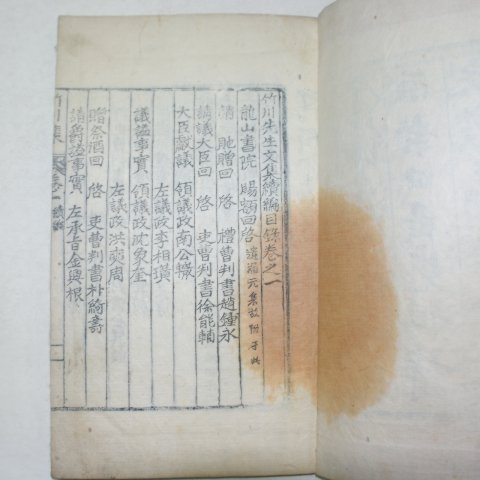 竹川先生文集續編目錄卷之一
龍山書院 賜額回啓 遺漏元集故附于此
請 貤贈回 啓 禮曹判書趙鍾永
請議大臣回 啓 吏曹判書徐能輔
大臣獻議 領議政南公轍
左議政李相璜
議謚事實 領議政沈象奎
左議政洪奭周
贈祭酒回 啓 吏曹判書朴綺壽
請爵謚事實 左承旨金興根
竹川集 卷之一 續編 一